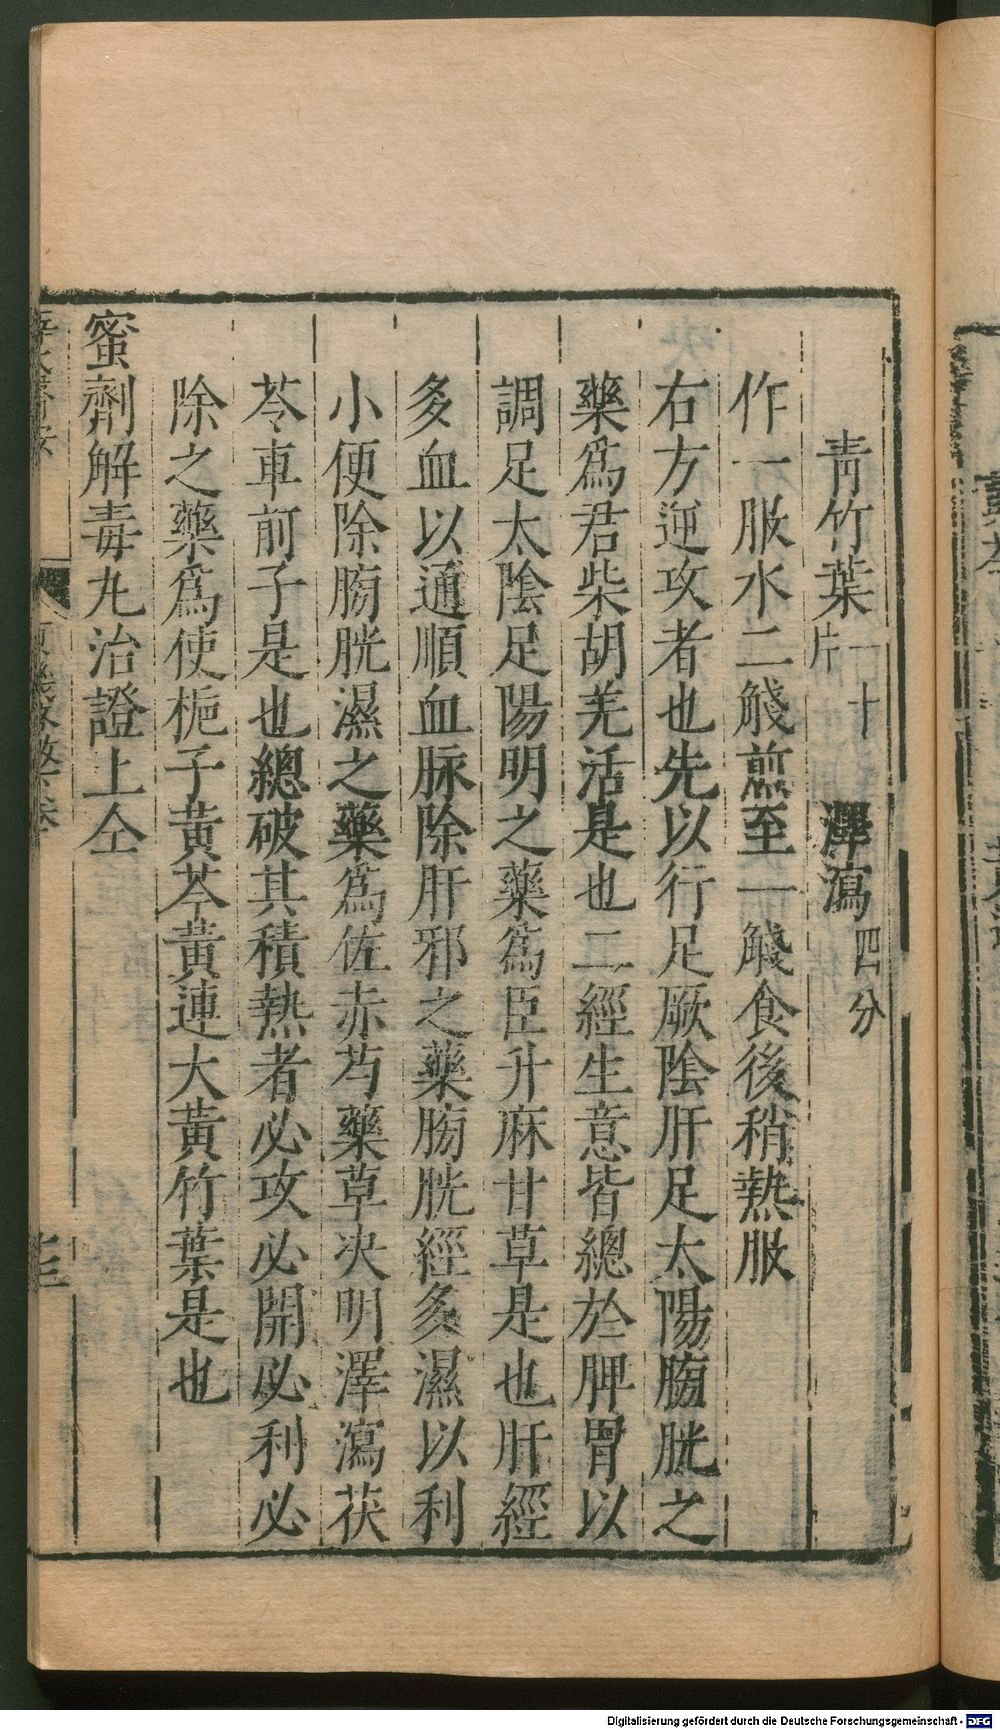 青竹葉一十片　澤瀉四分
作一服水二觥煎至一觥食後稍熱服
右方逆攻者也先以行足厥陰肝足太陽膀胱之
藥爲君柴胡羌活是也二經生意皆總於脾胃以
調足太陰足陽明之藥爲臣升麻甘草是也肝經
多血以通順血脉除肝邪之藥膀胱經多濕以利
小便除膀胱濕之藥爲佐赤芍藥草决明澤瀉茯
苓車前子是也總破其積熱者必攻必開必利必
除之藥爲使梔子黄芩黄連大黄竹葉是也
蜜劑解毒丸治證上仝
Digitalisierung gefördert durch die Deutsche Forschungsgemeinschaft - DFG